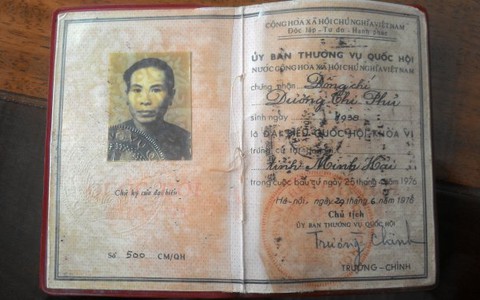 Chữ ký của đại biểu
Số 500 CM/QH
CỘNG HÒA XÃ HỘI CHỦ NGHĨA VIỆT NAM
Độc lập - Tự do - Hạnh phúc
ỦY BAN THƯỜNG VỤ QUỐC HỘI
NƯỚC CỘNG HÒA XÃ HỘI CHỦ NGHĨA VIỆT NAM
chứng nhận Đồng chí
Dương Thị Phú
sinh ngày 1938
là ĐẠI BIỂU QUỐC HỘI KHÓA VI
trúng cử tại
tỉnh Minh Hải
trong cuộc bầu cử ngày 25 tháng 4 năm 1976
Hà-nội, ngày 29 tháng 6 năm 1976
Chủ tịch
ỦY BAN THƯỜNG VỤ QUỐC HỘI
Trường Chinh
TRƯỜNG-CHINH